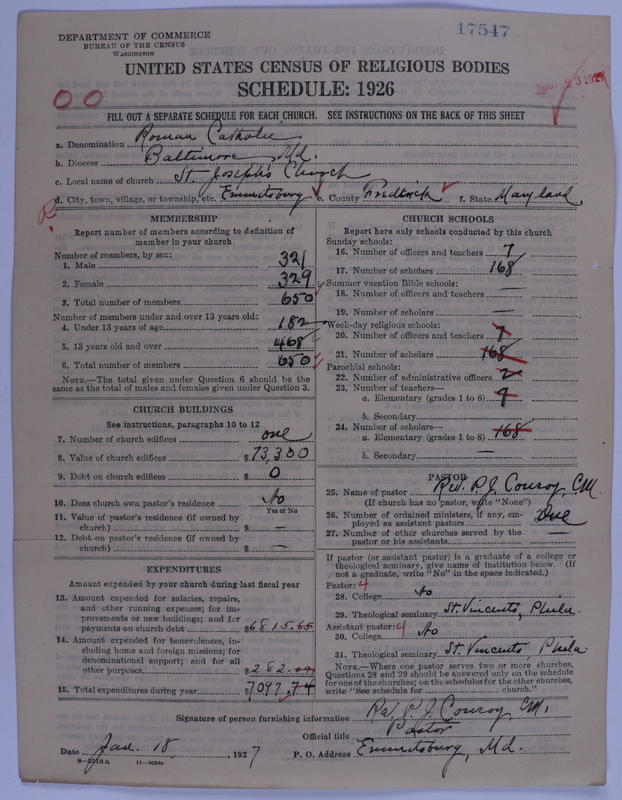 17547
DEPARTMENT OF COMMERCE
BUREAU OF THE CENSUS
WASHINGTON
UNITED STATES CENSUS OF RELIGIOUS BODIES
SCHEDULE: 1926
00
FILL OUT A SEPARATE SCHEDULE FOR EACH CHURCH. SEE INSTRUCTIONS ON THE BACK OF THIS SHEET
a. Denomination Roman Catholic
b. Diocese Baltimore, Md.
c. Local name of church St. Joseph's Church
d. City, town, village, or township, etc. Emmitsburg e. County Fredrick f. State Maryland
MEMBERSHIP
Report number of members according to definition of
member in your church
Number of members, by sex:
1. Male 321
2. Female 329
3. Total number of members 650
Number of members under and over 13 years old:
4. Under 13 years of age 182
5. 13 years old and over 468
6. Total number of members 650
NOTE.—The total given under Question 6 should be
same as the total of males and females given under Question 3.
CHURCH BUILDINGS
See instructions, paragraphs 10 to 12
7. Number of church edifices one
8. Value of church edifices $73,300
9. Debt on church edifices $ 0
10. Does church own pastor's residence No
Yes or No
11. Value of pastor's residence (if owned by
church) $ —
12. Debt on pastor's residence (if owned by
church) $ —
EXPENDITURES
Amount expended by your church during last fiscal year
13. Amount expended for salaries, repairs,
and other running expenses; for im-
provements or new buildings; and for
payments on church debt $6815.65
14. Amount expended for benevolences, in-
cluding home and foreign missions; for
denominational support; and for all
other purposes $282.09
15. Total expenditures during year $7097.74
CHURCH SCHOOLS
Report here only schools conducted by this church
Sunday schools:
16. Number of officers and teachers 7
17. Number of scholars 168
Summer vacation Bible schools:
18. Number of officers and teachers —
19. Number of scholars —
Week-day religious schools:
20. Number of officers and teachers 7
21. Number of scholars 168
Parochial schools:
22. Number of administrative officers 2
23. Number of teachers—
a. Elementary (grades 1 to 8)
b. Secondary —
24. Number of scholars—
a. Elementary (grades 1 to 8) 168
b. Secondary —
PASTOR
25. Name of pastor Rev. P. J. Conroy, C.M.
(If church has no pastor, write "None")
26. Number of ordained ministers, if any, em-
ployed as assistant pastors One
27. Number of other churches served by the
pastor or his assistants —
If pastor (or assistant pastor) is a graduate of a college or
theological seminary, give name of institution below. (If
not a graduate, write "No" in the space indicated.)
Pastor: 4
28. College No
29. Theological seminary St. Vincents, Phila.
Assistant pastor: 4
30. College No
31. Theological seminary St. Vincents, Phila
NOTE.—Where one pastor serves two or more churches,
Questions 28 and 29 should be answered only on the schedule
for one of the churches; on the schedules for the other churches,
write "See schedule for church."
Signature of person furnishing information Rev. P. J. Conroy, C.M.
Official title Pastor
Date Jan. 18, 1927 P. O. Address Emmitsburg, Md.